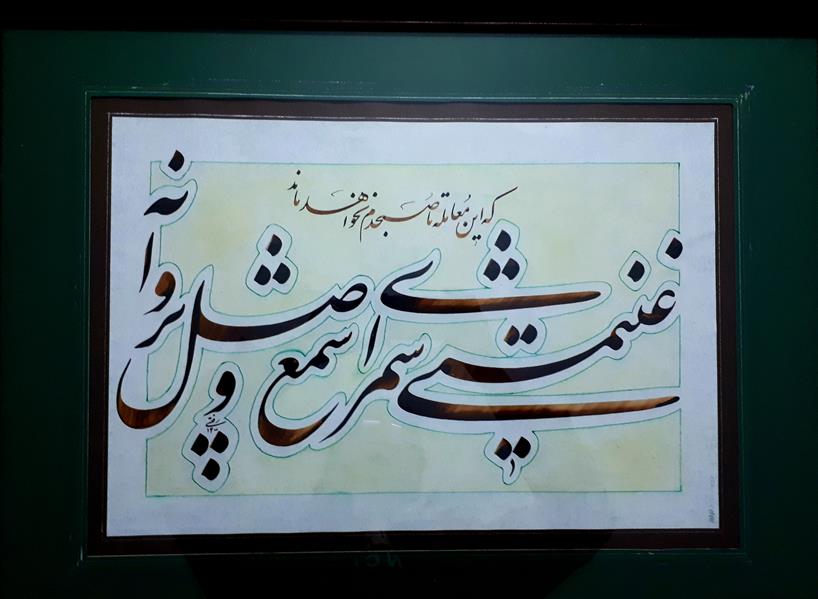 غنیمتی شمر ای شمع وصل پروانه
که این معامله تا صبحدم نخواهد ماند